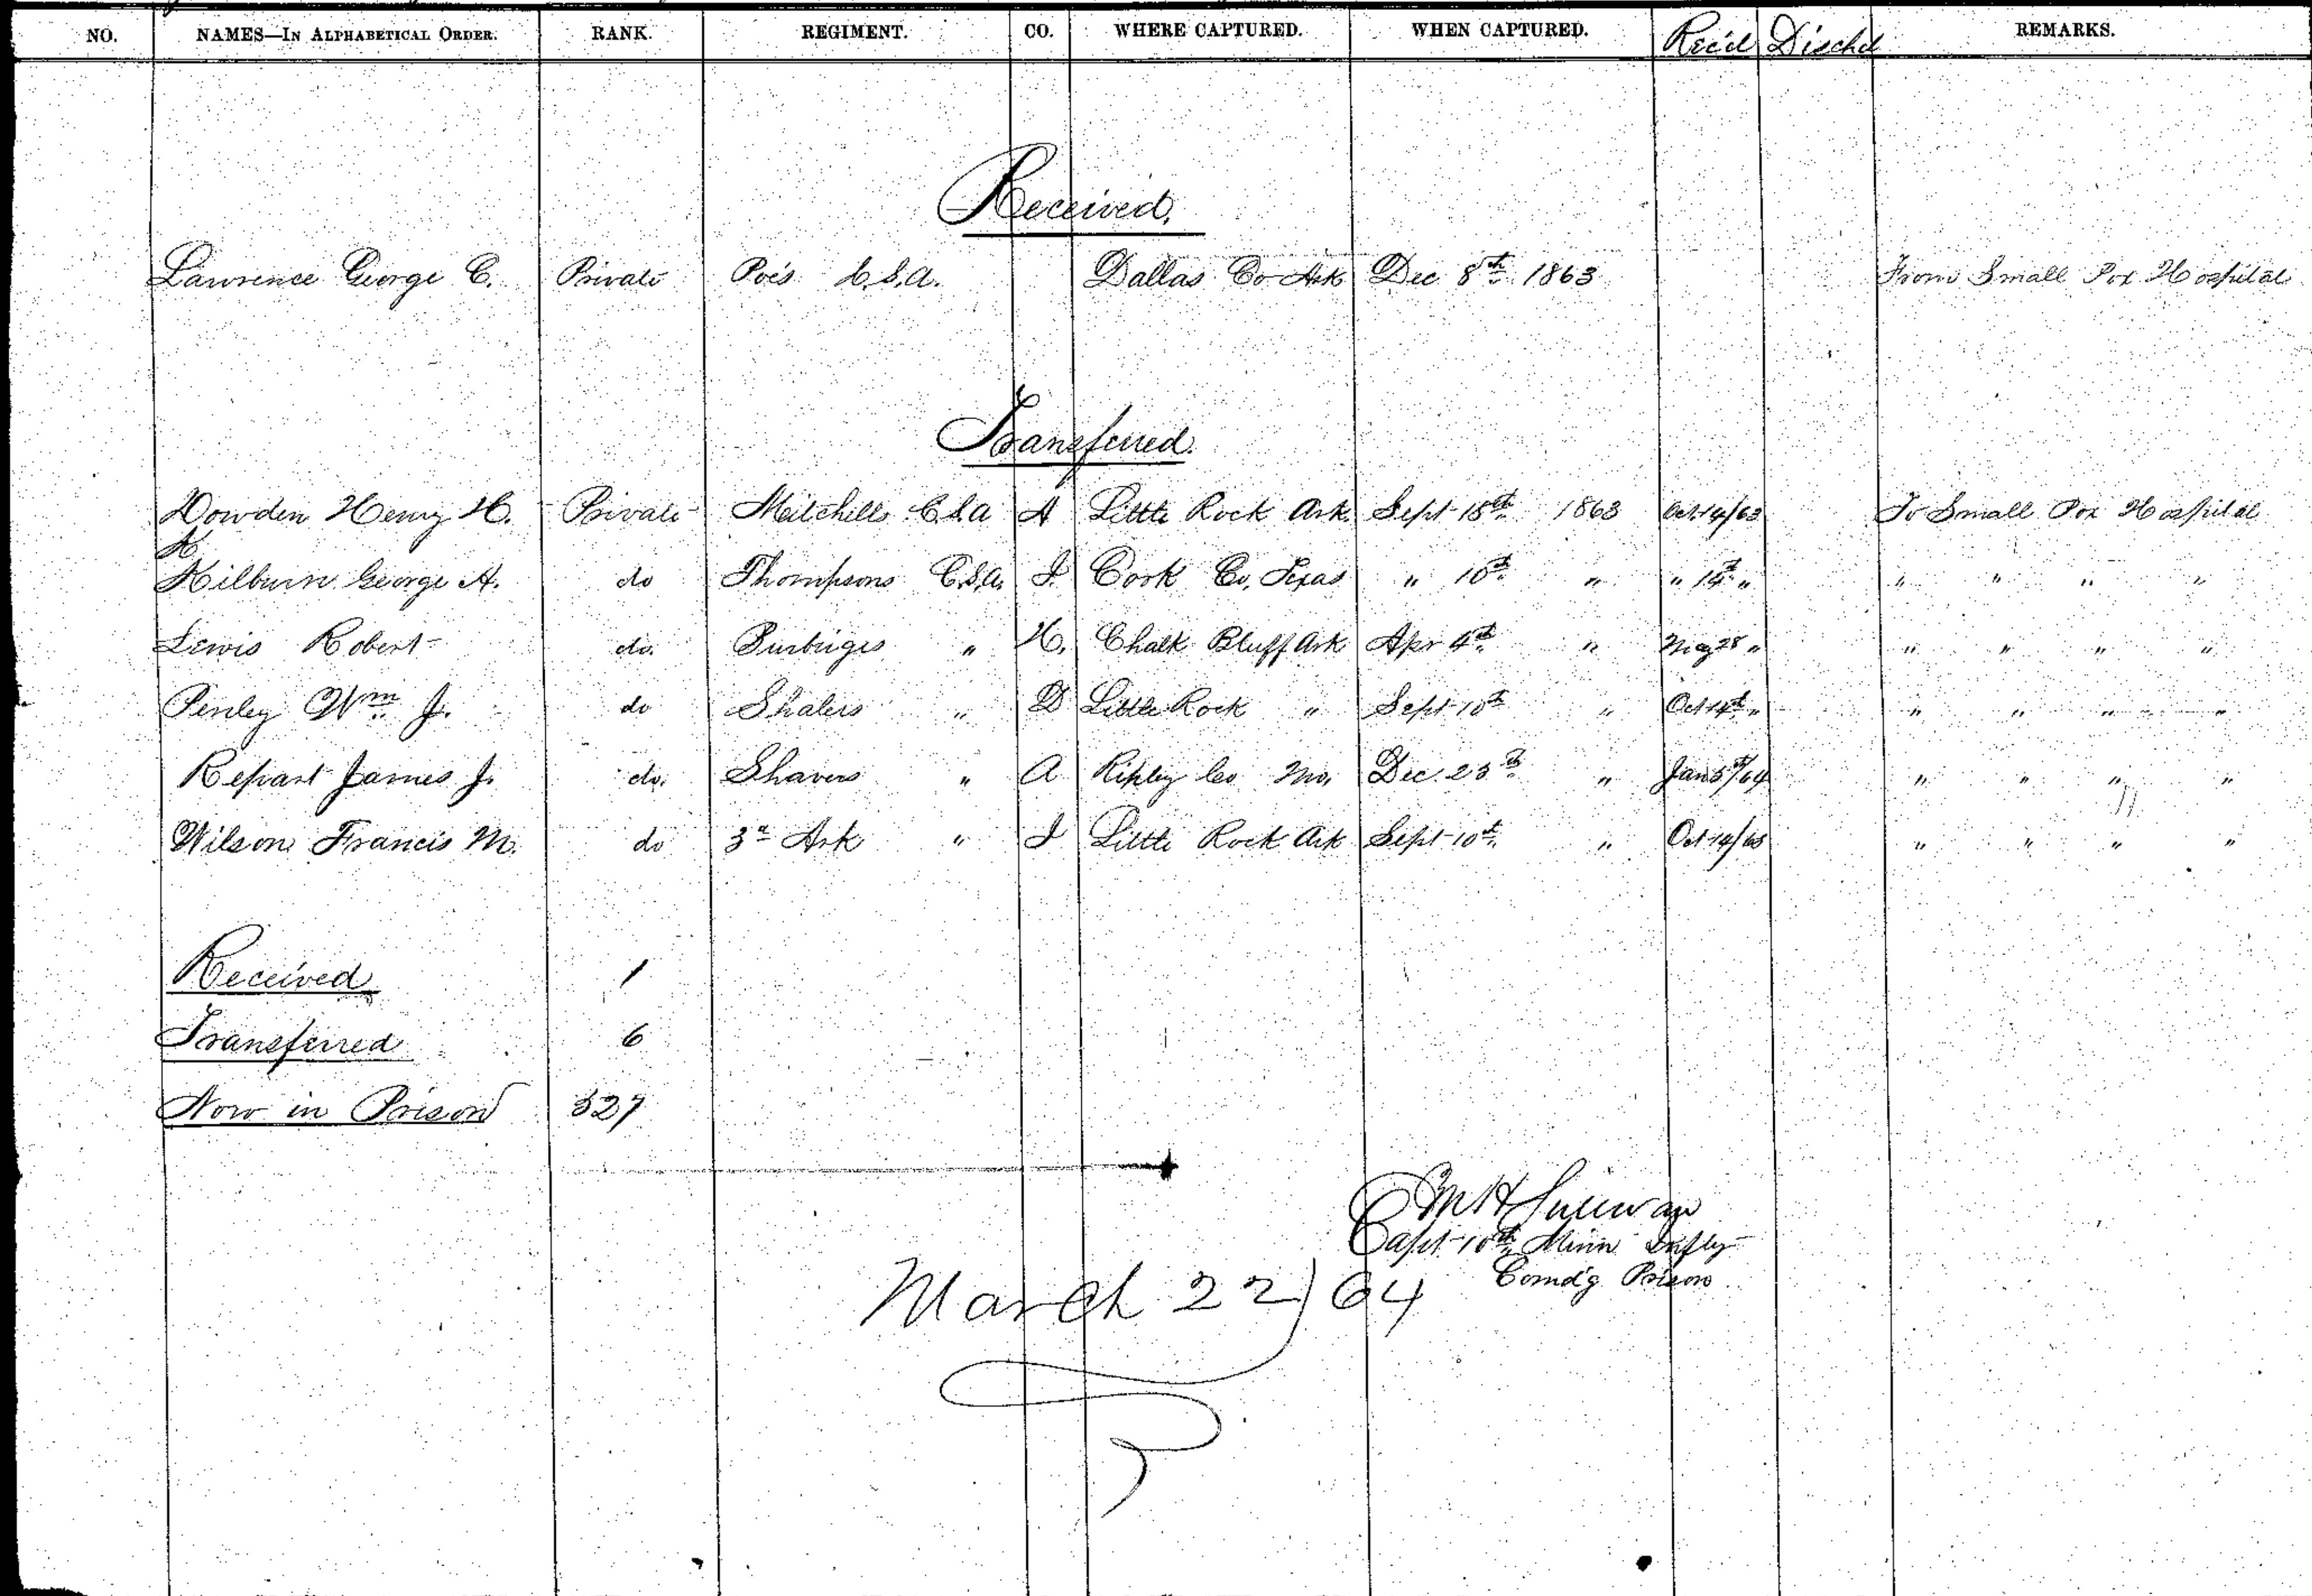 NO. NAMES—IN ALPHABETICAL ORDER. RANK. REGIMENT. CO. WHERE CAPTURED. WHEN CAPTURED. Rec'd Dischd REMARKS.
Received.
Lawrence George C. Private C.S.A. Dallas Co Ark Dec 8th 1863 From Small Pox Hospital
Transferred.
Dowden Henry H. Private Mitchells C.S.a A Little Rock Ark. Sept 18th 1863 Oct 14/63 To Small Pox Hospital
K
Kilburn George A. do Thompsons C.S.a. I Cook Co, Texas " 10th " " 14th " " " " "
Lewis Robert do. Burbriges " H. Chalk Bluff Ark Apr 4th " May 28 " " " " "
Penley Wm J. do Shalers " D Little Rock " Sept 10th " Oct 14th " " " " "
James J. do. Shavers " A Ripley Co Mo, Dec. 25th " Jan 5th/64 " " " "
Wilson Francis M. do 3d Ark " I Little Rock Ark Sept 10th " Oct 14/63 " " " "
Received 1
Transferred 6
Now in Prison 327
Capt 10th Minn Infty
Comd'g Prison
March 22/64